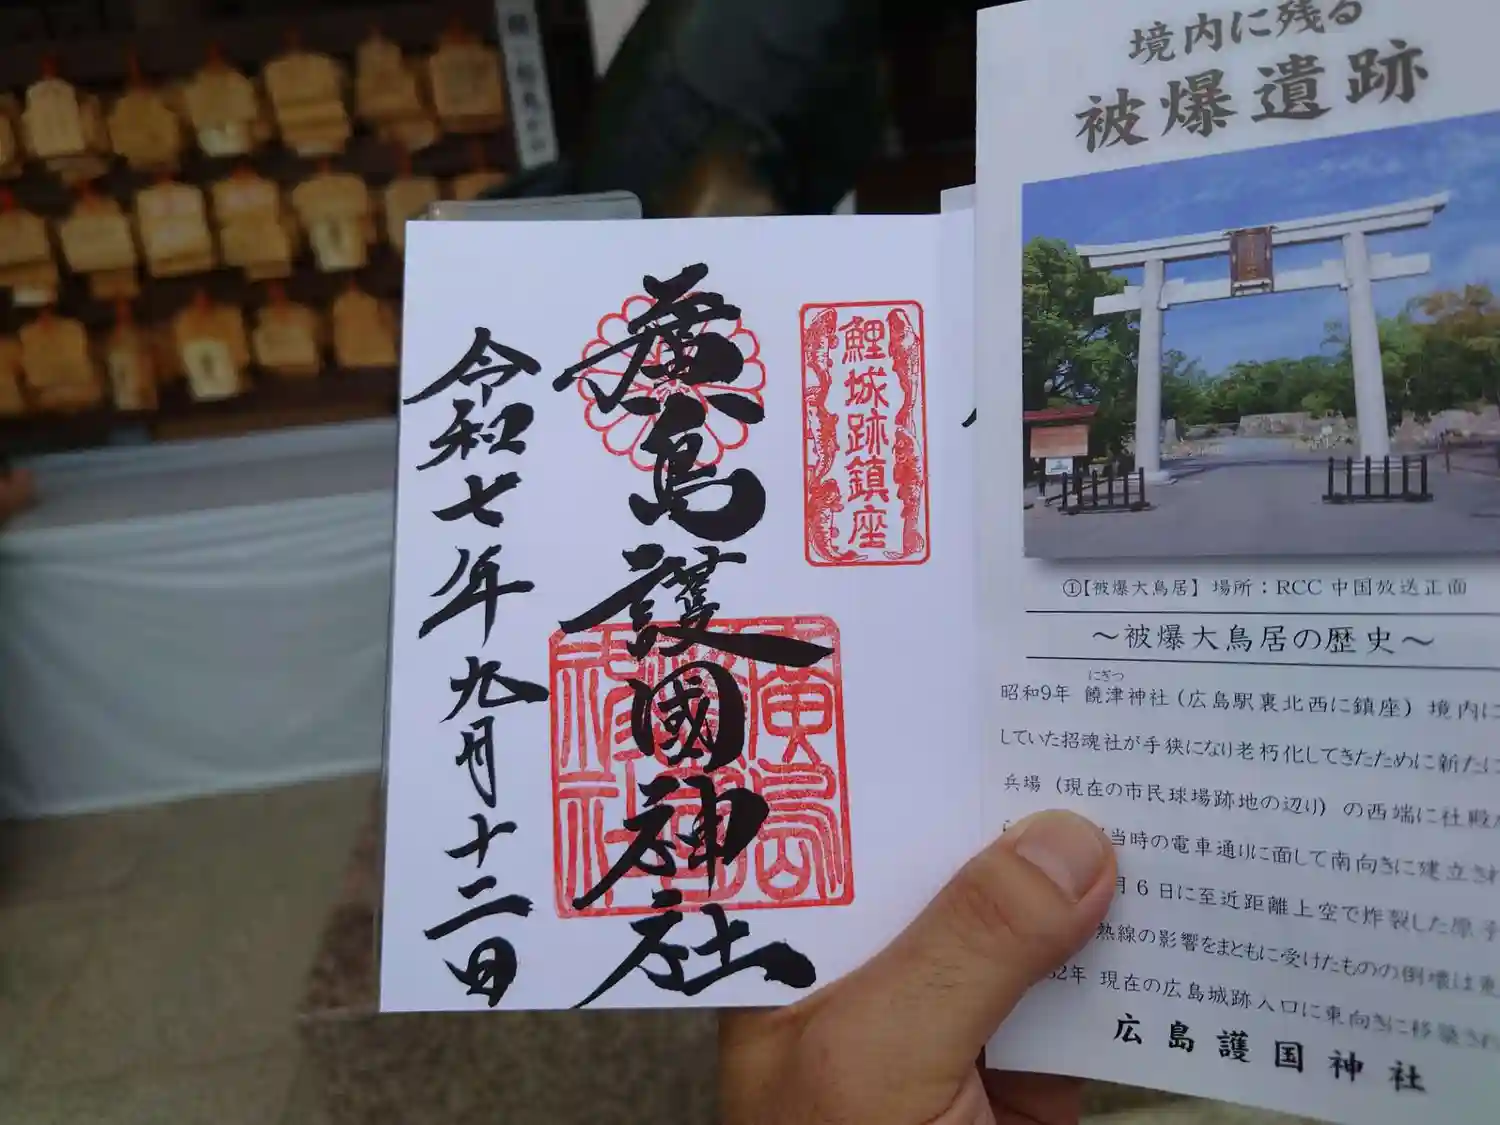 廣島護國神社
令和七年九月十二日
鯉城跡鎮座
廣島
神社
境内に残る
被爆遺跡
①【被爆大鳥居】 場所：RCC 中国放送正面
～被爆大鳥居の歴史～
にぎつ
昭和9年 饒津神社（広島駅裏北西に鎮座）境内に
していた招魂社が手狭になり老朽化してきたために新たに
兵場（現在の市民球場跡地の辺り）の西端に社殿
当時の電車通りに面して南向きに建立され
月6日に至近距離上空で炸裂した原子
熱線の影響をまともに受けたものの倒壊は東
32年 現在の広島城跡入口に東向きに移築され
広島護国神社